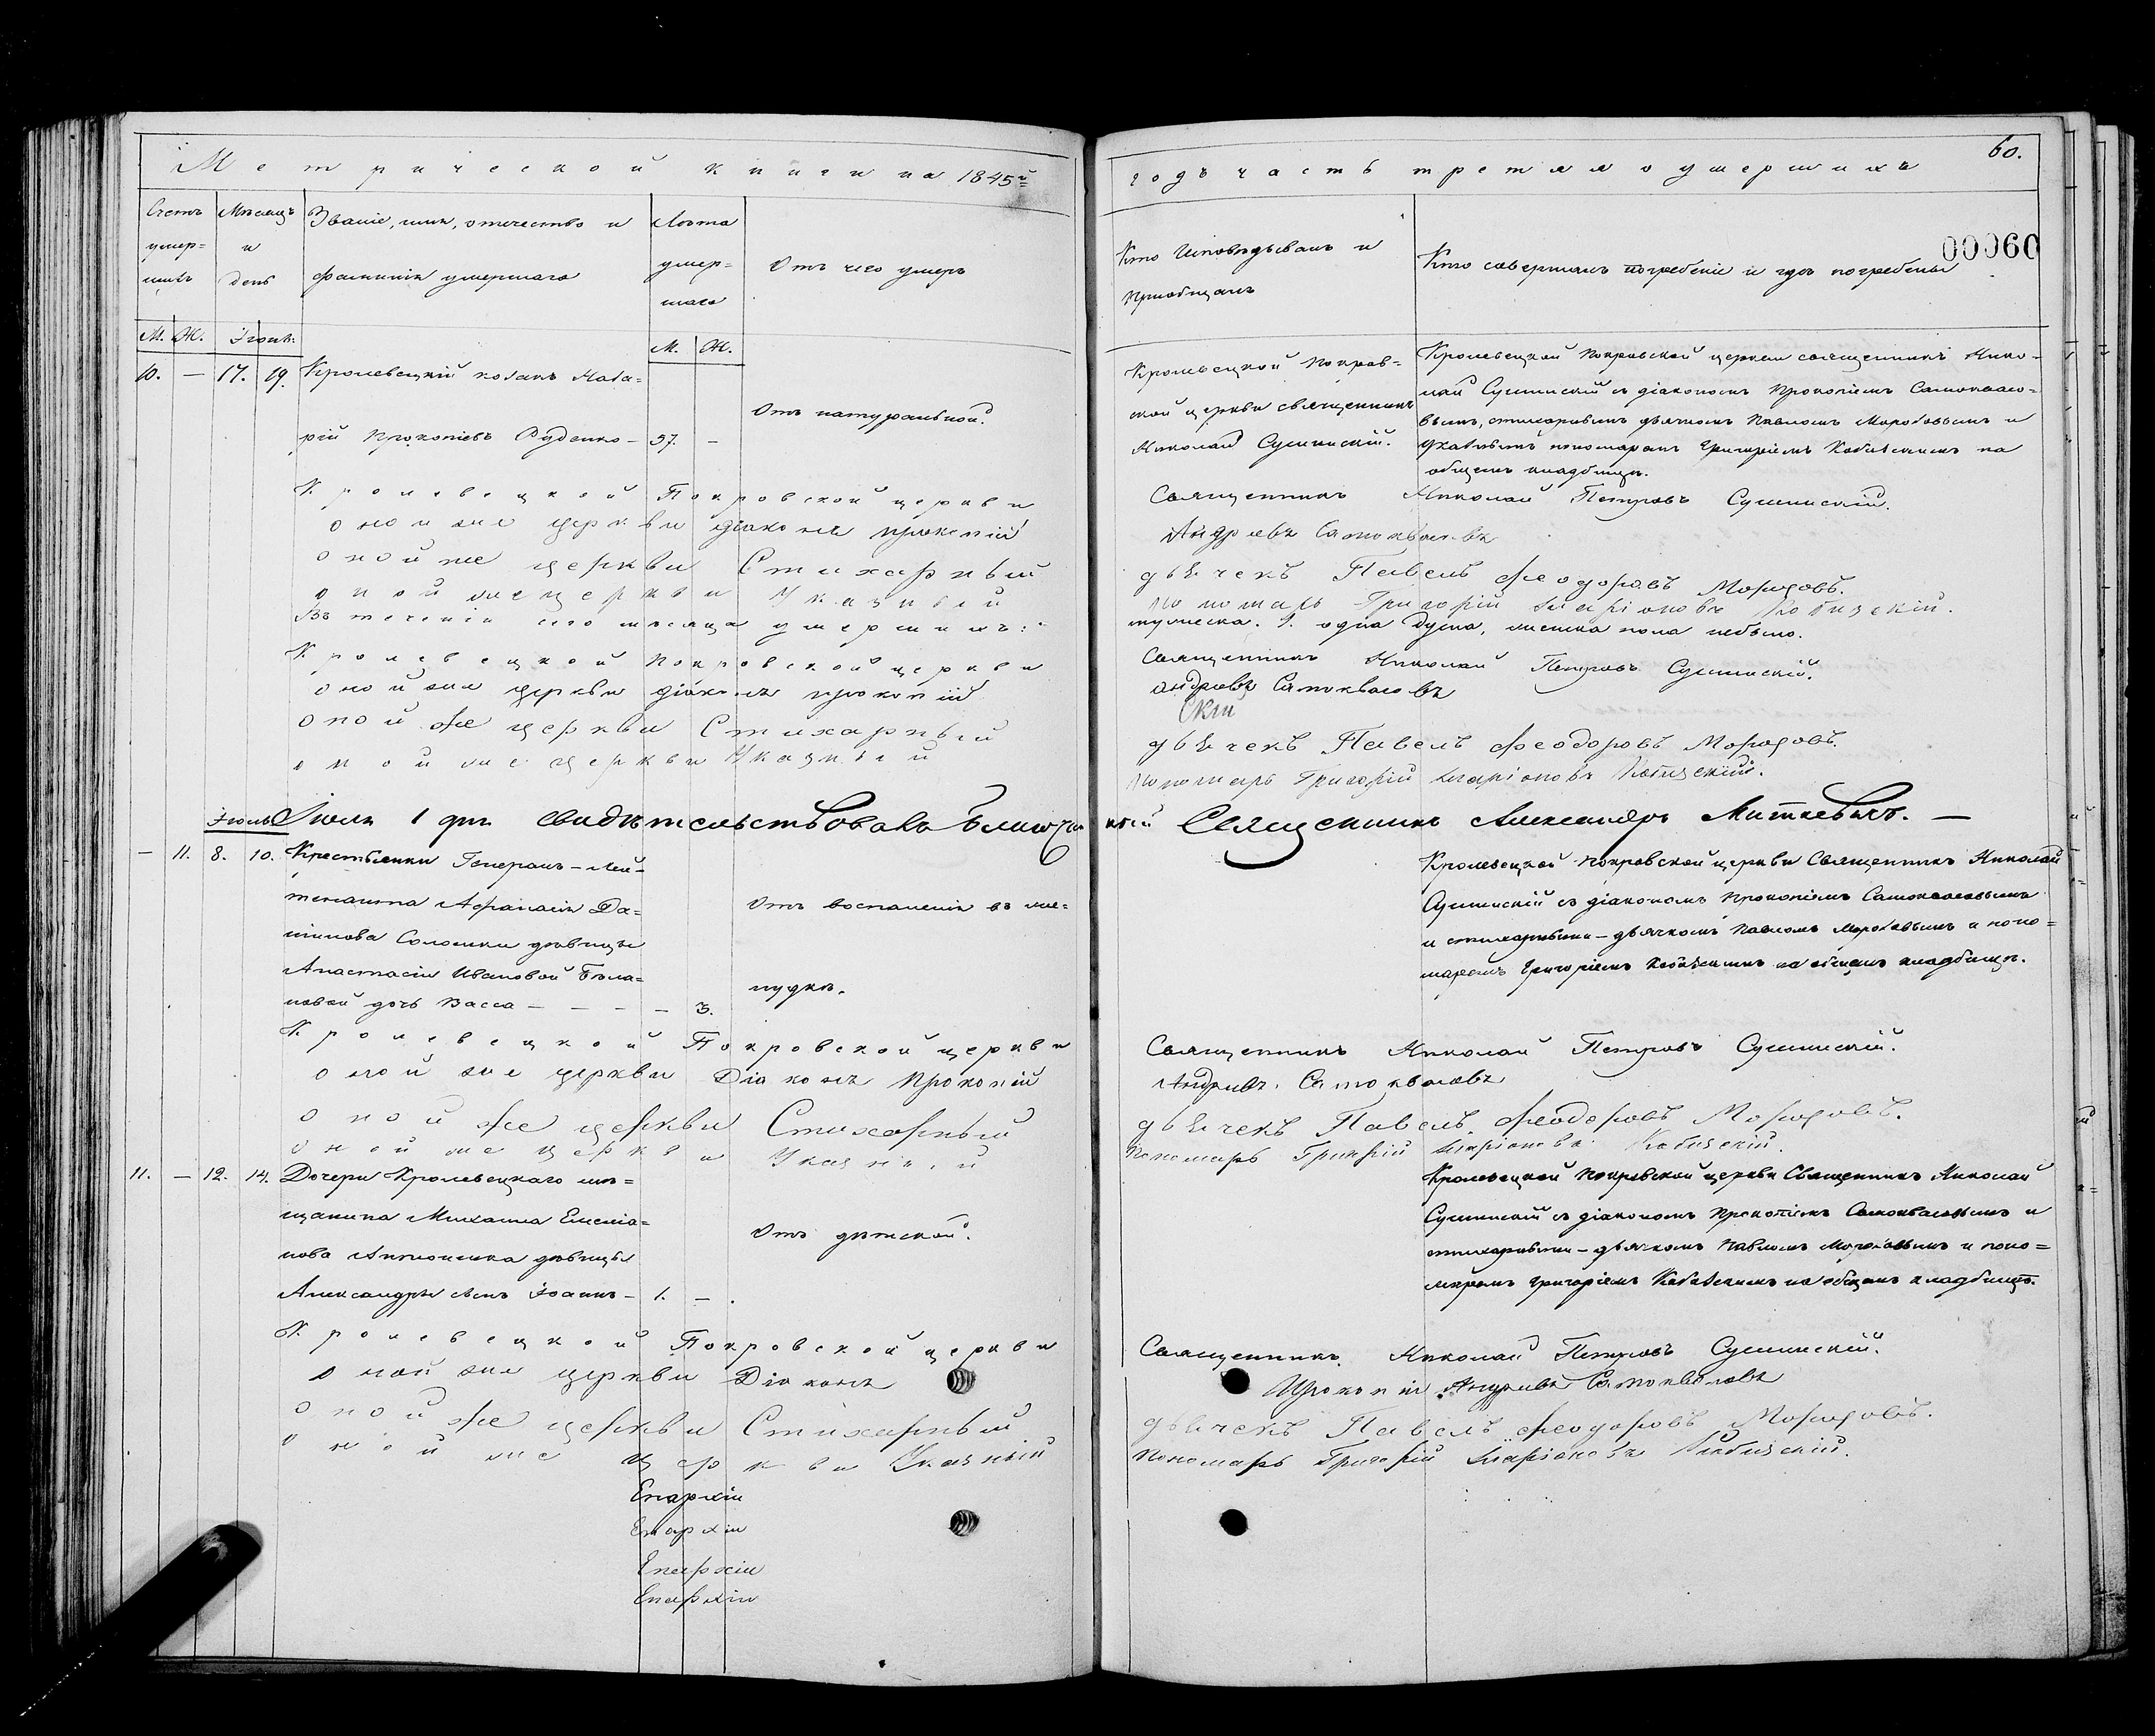 Метрической книги на 1845й
Счетъ умер= шихъ
Мѣсяцъ и день
Званіе, имя, отечество и фамилія умершаго
Лѣта умер= шаго
Отъ чего умеръ
М. Ж. Іюнь. М. Ж.
10. — 17. 19. Кролевецкій козакъ Наза=
рій Прокопіевъ Руденко — 57. —
Отъ натуральной.
Кролевецкой Покровской церкви
оной же церкви діаконъ Прокопій
оной же церкви Стихарный
оной же церкви Указный
Въ теченіи сего мѣсяца умершихъ:
Кролевецкой Покровской церкви
оной же церкви діаконъ Прокопій
оной же церкви Стихарный
оной же церкви Указный
Іюль Іюля 1 дня свидѣтельствовалъ
— 11. 8. 10. Крестьянки Генералъ-Лей=
тенанта Афанасія Да=
нилова Соломки дѣвицы
Анастасіи Ивановой Бѣла=
новой дочь Васса — — — — 3.
Отъ воспаленія въ же=
лудкѣ.
Кролевецкой Покровской церкви
оной же церкви Діаконъ Прокопій
оной же церкви Стихарный
оной же церкви Указный
11. — 12. 14. Дочери Кролевецкаго мѣ=
щанина Михаила Емелья=
нова дѣвицы
Александры сынъ Іоаннъ — 1. —.
Отъ дѣтской.
Кролевецкой Покровской церкви
оной же церкви Діаконъ
оной же церкви Стихарный
оной же церкви Указный
Епархіи
Епархіи
Епархіи
Епархіи
60.
годъ часть третяя о умершихъ
00060
Кто исповѣдывалъ и пріобщалъ
Кто совершалъ погребеніе и гдѣ погребены
Кролевецкой Покров=
ской церкви священникъ
Николай Сушинскій.
Кролевецкой Покровской церкви священникъ Нико=
лай Сушинскій съ діакономъ Прокопіемъ Самоквасо=
вымъ, стихарнымъ дьячкомъ Павломъ Морозовымъ и
указнымъ пономаремъ Григоріемъ Кобизскимъ на
общемъ кладбищѣ.
Священникъ Николай Петровъ Сушинскій.
Андреевъ Самоквасовъ
дьячекъ Павелъ Феодоровъ Морозовъ.
Пономарь Григорій Иларіоновъ Кобизскій.
мужеска. 1. одна душа, женска пола небыло.
Священникъ Николай Петровъ Сушинскій.
Андреевъ Самоквасовъ
дьячекъ Павелъ Феодоровъ Морозовъ.
Пономарь Григорій Иларіоновъ Кобизскій.
Священникъ Александръ Миткевичъ. —
Кролевецкой Покровской церкви Священникъ Николай
Сушинскій съ діакономъ Прокопіемъ Самоквасовымъ
и стихарными — дьячкомъ Павломъ Морозовымъ и поно=
маремъ Григоріемъ Кобизскимъ на общемъ кладбищѣ.
Священникъ Николай Петровъ Сушинскій.
Андреевъ Самоквасовъ
дьячекъ Павелъ Феодоровъ Морозовъ.
Пономарь Григорій Иларіоновъ Кобизскій.
Кролевецкой Покровской церкви Священникъ Николай
Сушинскій съ діакономъ Прокопіемъ Самоквасовымъ и
стихарными — дьячкомъ Павломъ Морозовымъ и поно=
маремъ Григоріемъ Кобизскимъ на общемъ кладбищѣ.
Священникъ Николай Петровъ Сушинскій.
Прокопій Андреевъ Самоквасовъ
дьячекъ Павелъ Феодоровъ Морозовъ.
Пономарь Григорій Иларіоновъ Кобизскій.